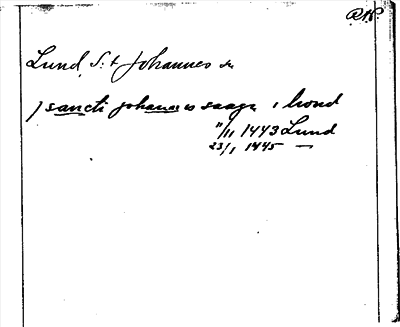 Lund, S:t Johannes sn
j sancti johannes soagn i lwnd
"/11 1443 Lund
23/1 1445 —